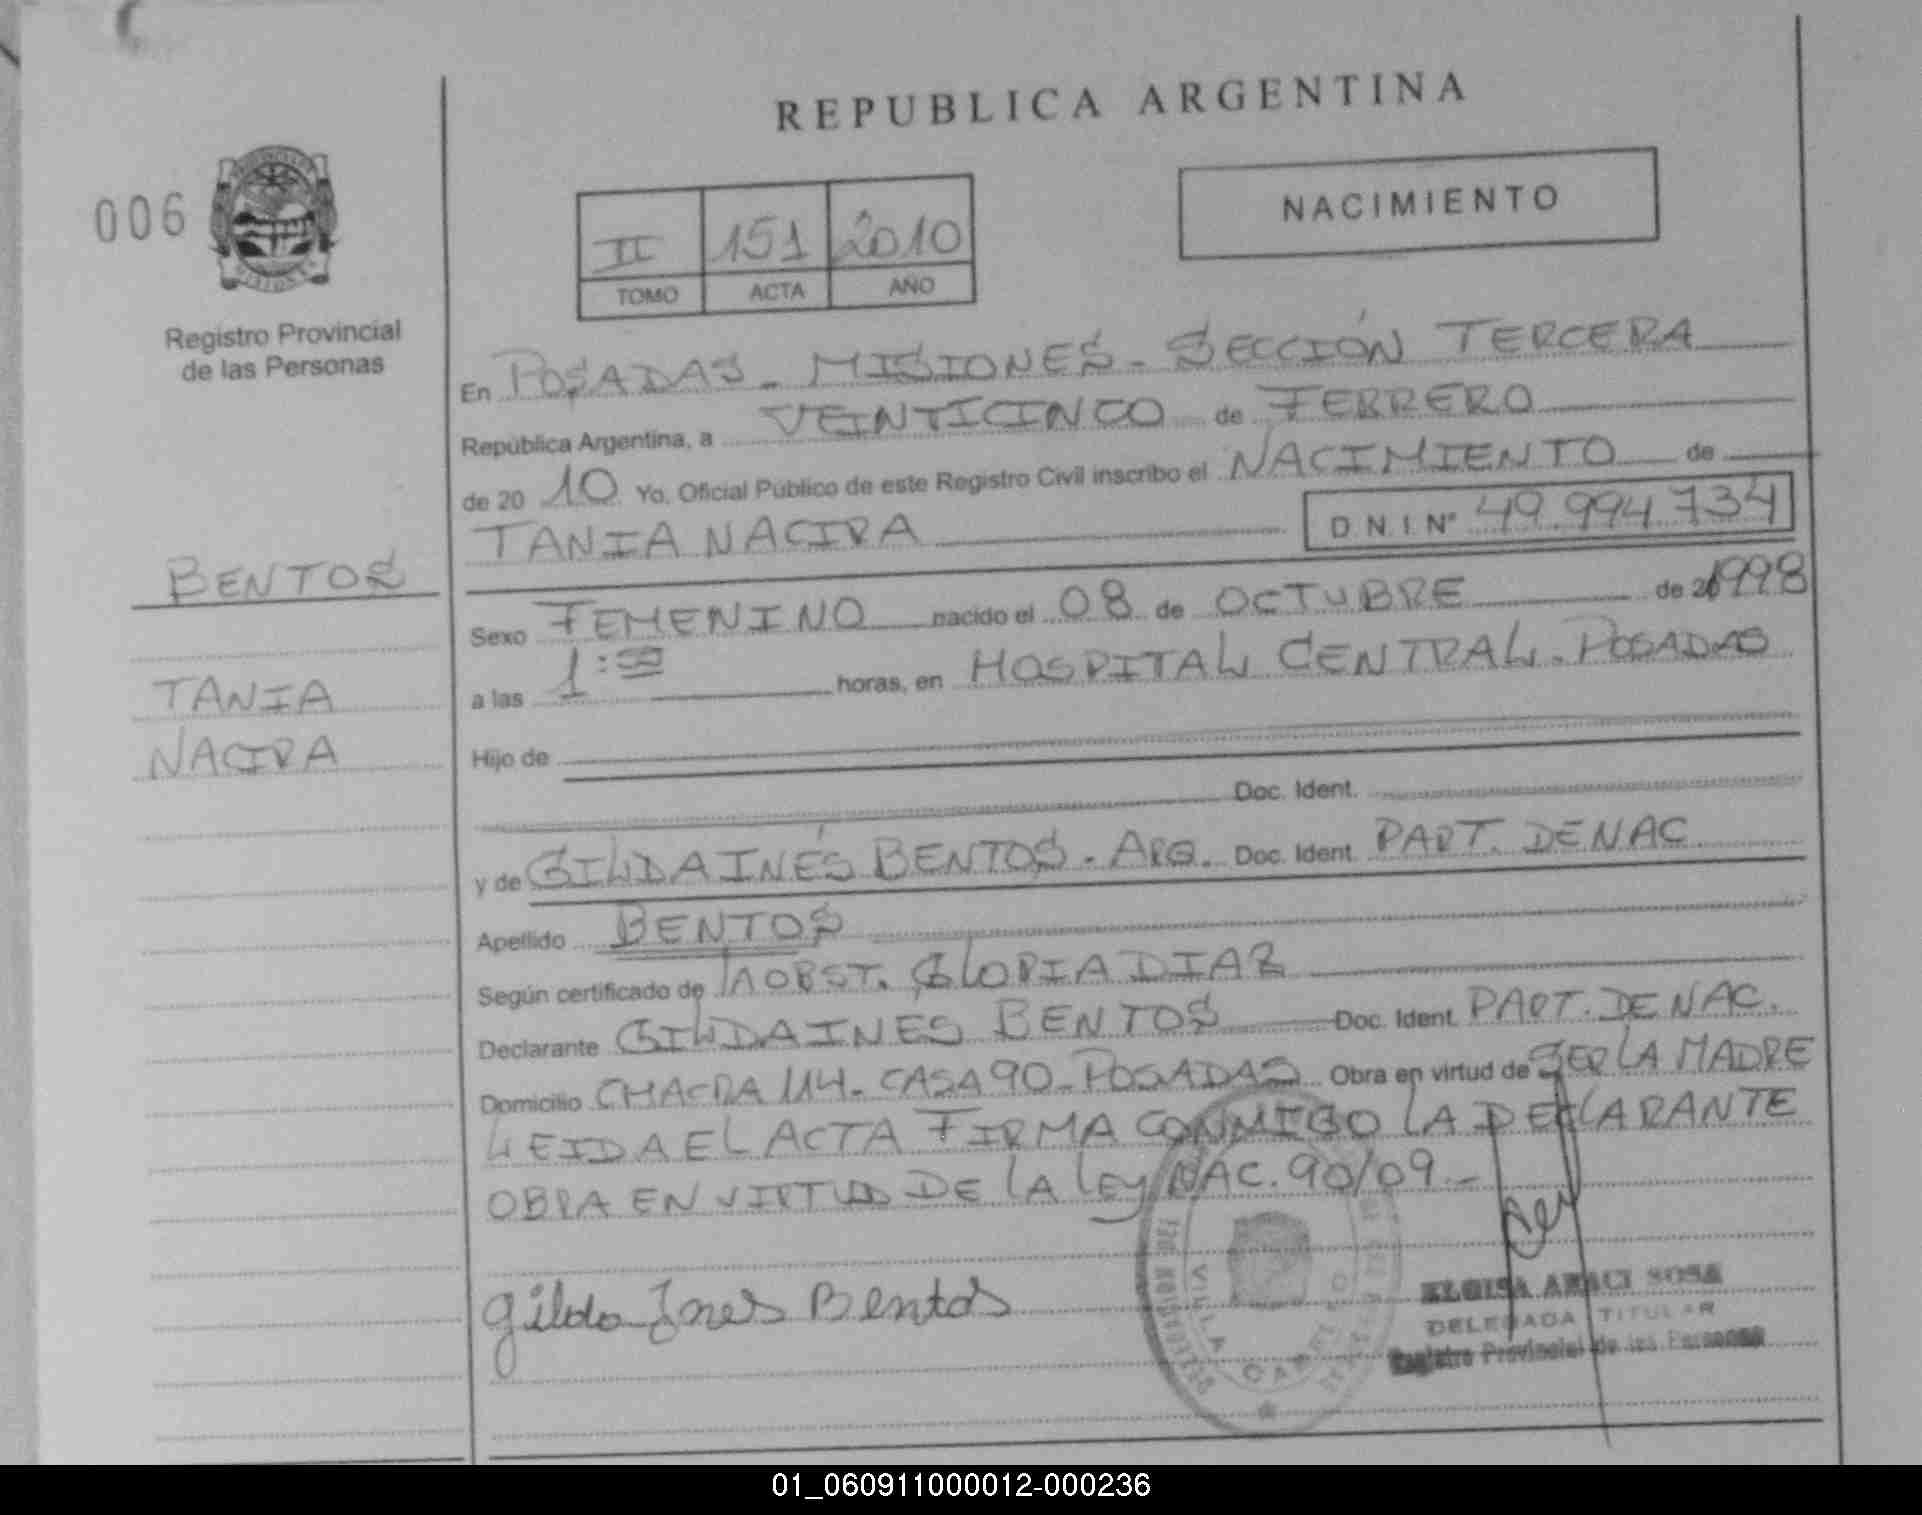 REPUBLICA ARGENTINA
006
NACIMIENTO
II 151 2010
TOMO ACTA AÑO
Registro Provincial
de las Personas
En POSADAS - MISIONES - SECCIÓN TERCERA
República Argentina, a VEINTICINCO de FEBRERO
de 20 10 Yo, Oficial Público de este Registro Civil inscribo el NACIMIENTO de
TANIA NACIRA D.N.I. Nº 49.994.734
BENTOS
TANIA
NACIRA
Sexo FEMENINO nacido el 08 de OCTUBRE de 1998
a las 1:00 horas, en HOSPITAL CENTRAL - POSADAS
Hijo de
Doc. Ident.
y de GILDA INÉS BENTOS - ARG. Doc. Ident. PART. DE NAC
Apellido BENTOS
Según certificado de OBST. GLORIA DIAZ
Declarante GILDA INES BENTOS Doc. Ident. PART. DE NAC.
Domicilio CHACRA 114 - CASA 90 - POSADAS Obra en virtud de SER LA MADRE
LEIDA EL ACTA FIRMA CONMIGO LA DECLARANTE
OBRA EN VIRTUD DE LA LEY NAC. 90/09.-
Gilda Ines Bentos
ELOISA ARACI SOSA
DELEGADA TITULAR
Registro Provincial de las Personas
VILLA CABELLO
01_060911000012-000236